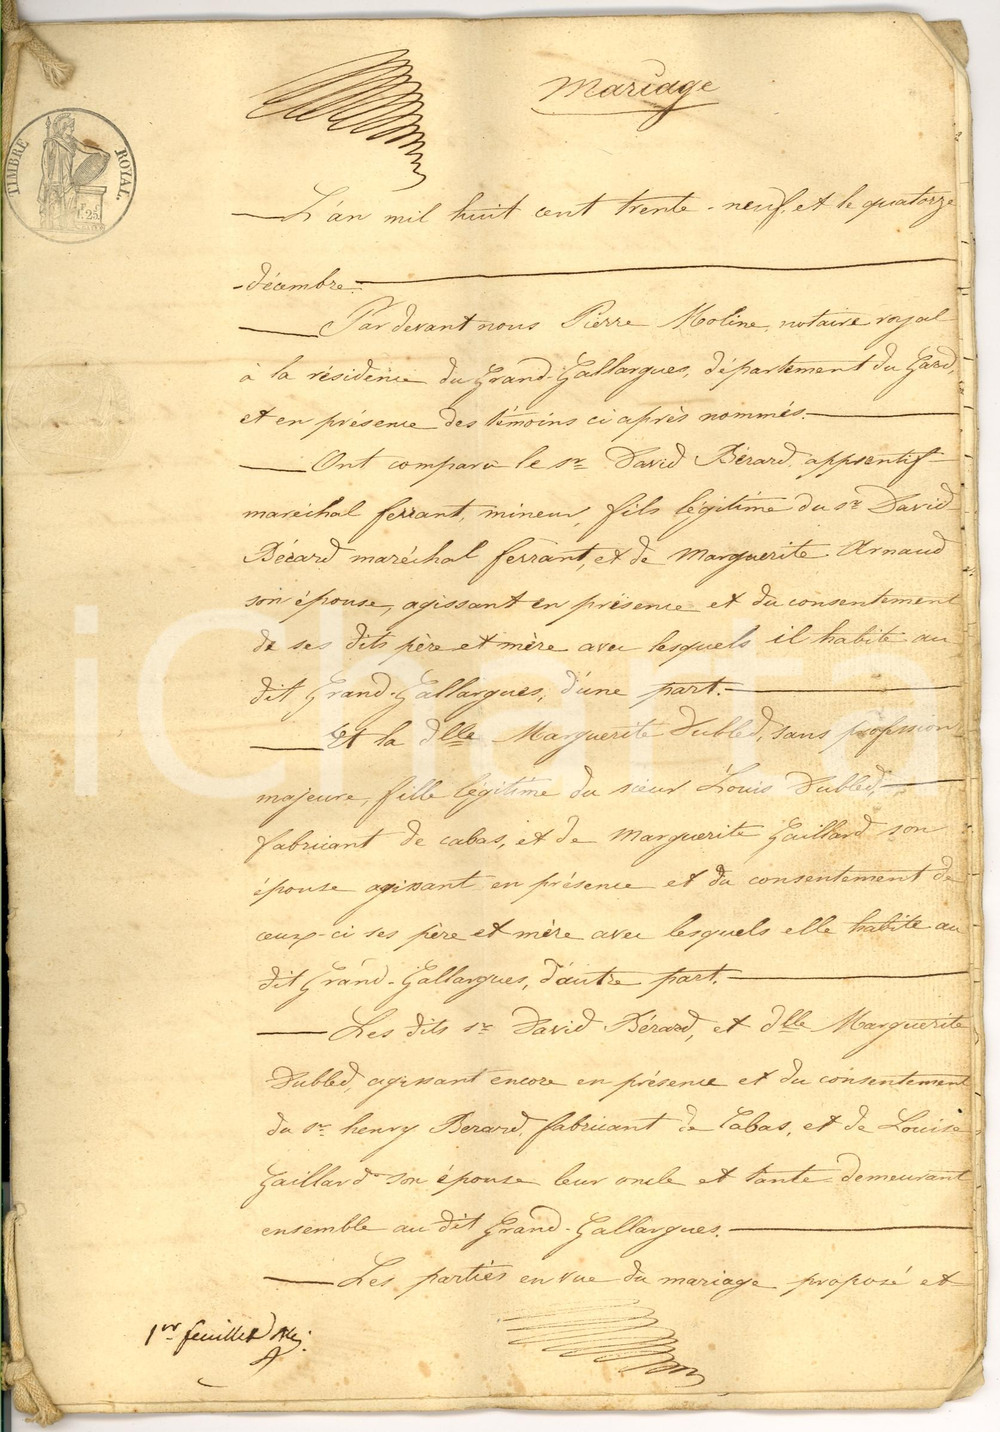 Mariage
TIMBRE ROYAL.
F. 1.25.
L'an mil huit cent trente-neuf, et le quatorze
décembre.
Par devant nous Pierre Moline, notaire royal
à la résidence du Grand-Gallargues, département du Gard,
et en présence des témoins ci après nommés.
Ont comparu le sr David Bérard, apprentif
maréchal ferrant, mineur, fils légitime du sr David
Bérard maréchal ferrant, et de Marguerite Arnaud
son épouse, agissant en présence et du consentement
de ses dits père et mère avec lesquels il habite au
dit Grand-Gallargues, d'une part.
Et la dlle Marguerite Dubled, sans profession
majeure, fille légitime du sieur Louis Dubled,
fabricant de cabas, et de Marguerite Gaillard son
épouse agissant en présence et du consentement de
ceux-ci ses père et mère avec lesquels elle habite au
dit Grand-Gallargues, d'autre part.
Les dits sr David Bérard, et dlle Marguerite
Dubled, agissant encore en présence et du consentement
du sr henry Bérard, fabricant de Cabas, et de Louise
Gaillard son épouse leur oncle et tante demeurant
ensemble au dit Grand-Gallargues.
Les parties en vue du mariage proposé et
1er feuillet
iCharta